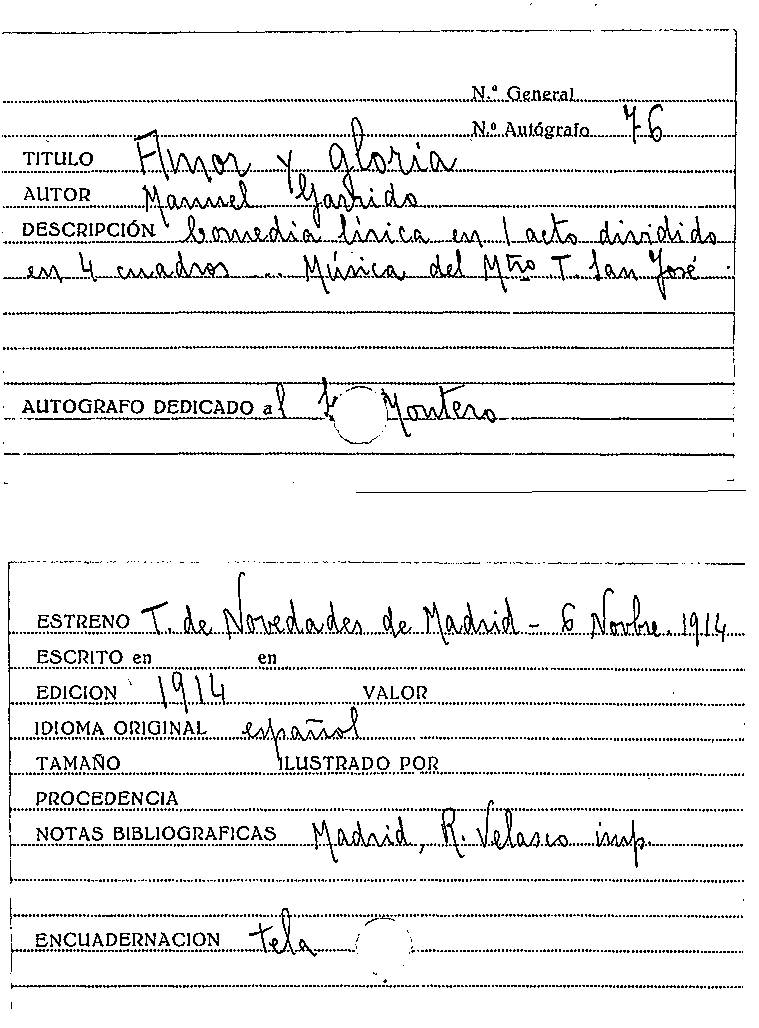 N.º General
N.º Autógrafo 76
TITULO Amor y gloria
AUTOR Manuel Garrido
DESCRIPCIÓN Comedia lírica en 1 acto dividido
en 4 cuadros ... Música del Mtro T. San José.
AUTOGRAFO DEDICADO al Montero
ESTRENO T. de Novedades de Madrid - 6 Novbre. 1914
ESCRITO en en
EDICION 1914 VALOR
IDIOMA ORIGINAL español
TAMAÑO ILUSTRADO POR
PROCEDENCIA
NOTAS BIBLIOGRAFICAS Madrid, R. Velasco imp.
ENCUADERNACION tela